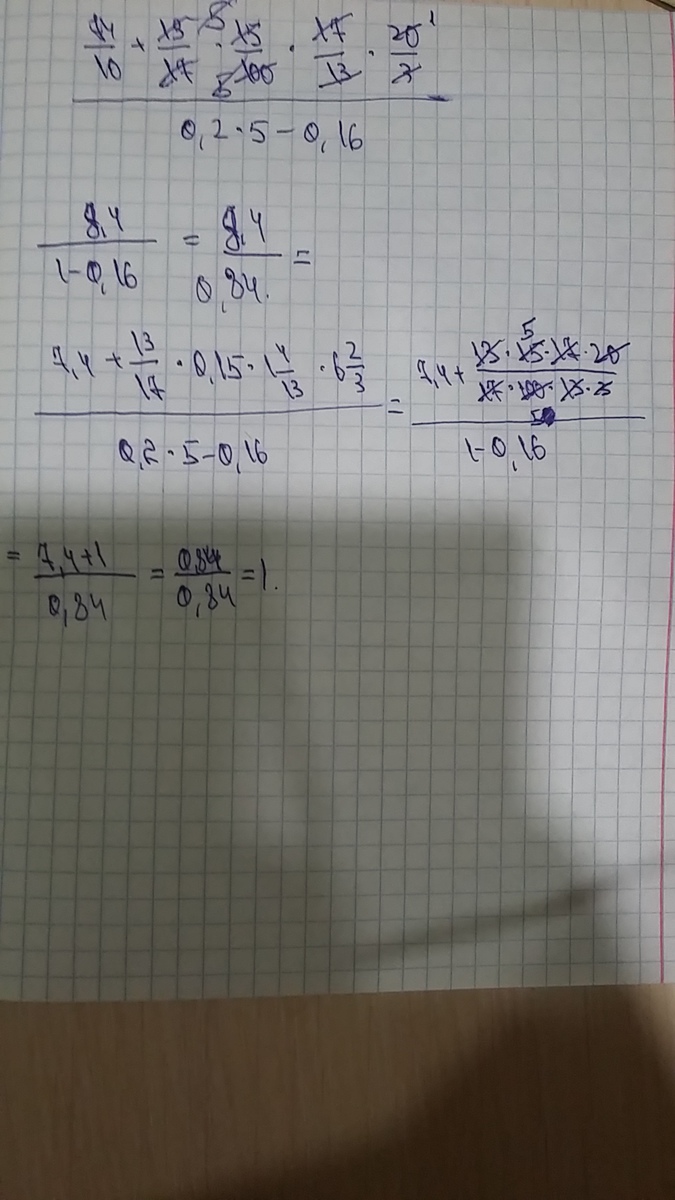 74/10 + 13/17 · 15/100 · 17/13 · 20/3 5 5 1
0,2·5-0,16
8,4/(1-0,16) = 8,4/0,84. =
(7,4 + 13/17 · 0,15 · 1 4/13 · 6 2/3)/(0,2·5-0,16) = (7,4 + (13·15·17·20)/(17·100·13·3))/(1-0,16) 5 5
= (7,4+1)/0,84 = 0,84/0,84 = 1.